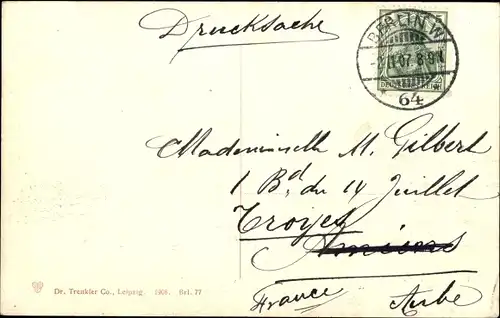 Drucksache
BERLIN W.
07. 8-9N
64
DEUTSCHES REICH
Mademoiselle M. Gilbert
1 Bd. du 14 Juillet
Troyes
Amiens
France Aube
Dr. Trenkler Co., Leipzig. 1906. Brl. 77